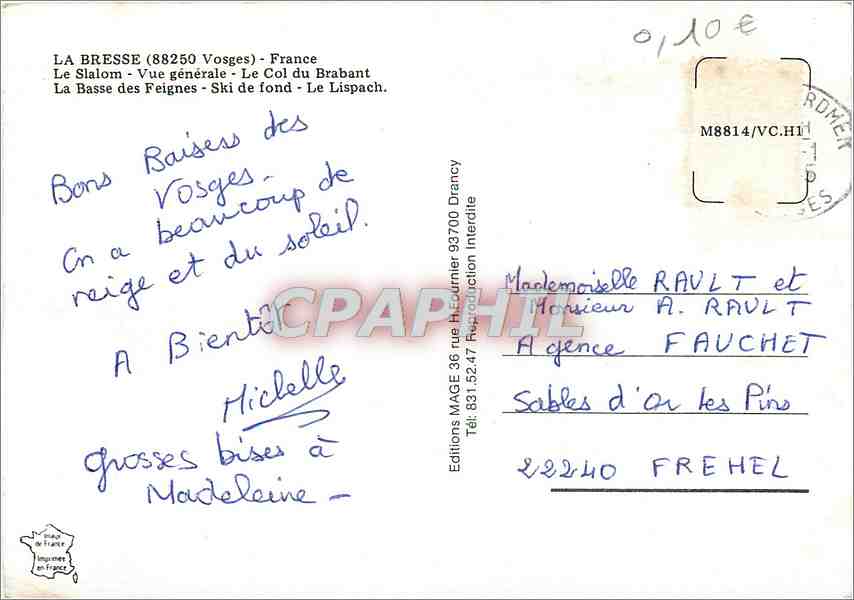 0,10 €
LA BRESSE (88250 Vosges) - France
Le Slalom - Vue générale - Le Col du Brabant
La Basse des Feignes - Ski de fond - Le Lispach.
M8814/VC.H1
Bons Baisess des
Vosges -
On a beaucoup de
neige et du soleil.
A Bientôt
Michelle
grosses bises à
Madeleine -
Editions MAGE 36 rue H. Fournier 93700 Drancy
Tél: 831.52.47 Reproduction Interdite
CPAPHIL
Mademoiselle RAULT et
Monsieur A. RAULT
Agence FAUCHET
Sables d'Or Les Pins
22240 FREHEL
Image
de France
Imprimée
en France